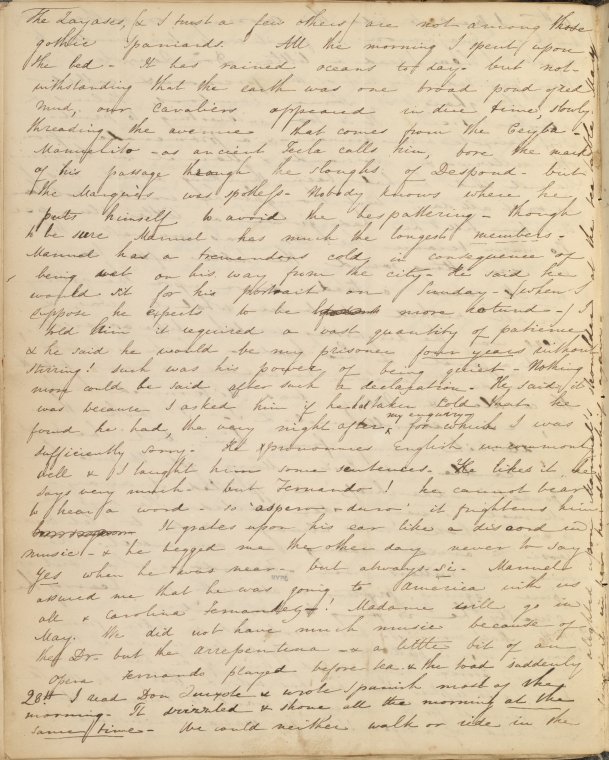 The Layases, (& I trust a few others) are not among those
gothic Spaniards. All the morning I spent upon
the bed - It has rained oceans to day - but not-
withstanding that the earth was one broad pond of red
mud, our Cavaliers appeared in due time, slowly
threading the avenue that comes from the Ceyba -
Manuelito - as ancient Tecle calls him, bore the mark
of his passage through the sloughs of Despond - but
the Marques was spotless - Nobody knows where he
puts himself to avoid the bespattering - though
to be sure Manuel has much the longest members -
Manuel has a tremendous cold, in consequence of
being wet on his way from the city - He said he
would sit for his portrait on Sunday - (when I
suppose he expects to be more rotund -) I
told him it required a vast quantity of patience
& he said he would be my prisoner four years without
stirring! such was his power of being quiet - Nothing
more could be said after such a declaration - He said it
was because I asked him if he had taken cold that he
found he had, the very night after my enquiry, for which I was
sufficiently sorry. He pronounces english uncommonly
well & I taught him some sentences. He likes it, he
says very much - but Fernando! he cannot bear
to hear a word - so 'aspero, duro' it frightens him
It grates upon his ear like a discord in
music - & he begged me the other day never to say
Yes when he was near - but always si - Manuel
assured me that he was going to America with us
all & Carolina Fernandez! Madame will go in
May. We did not have much music because of
the Dr. but the arrepentena - & a little bit of an
opera Fernando played before tea & the toad suddenly
28th I read Don Quixote & wrote Spanish most of the
morning - It drizzled & shone all the morning at the
same time - We could neither walk or ride in the